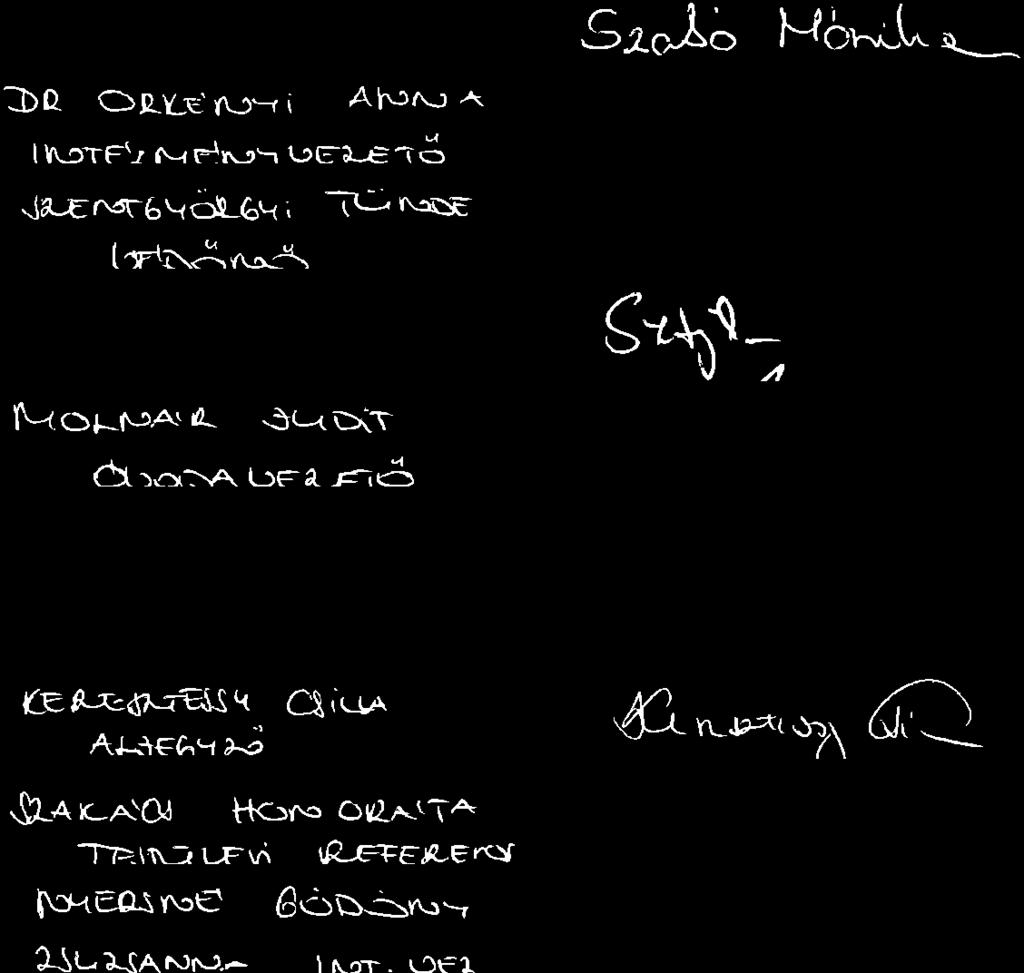 Szabó Mónika
DR ÖRKÉNYI ANNA
INTÉZMÉNYVEZETŐ
SZENTGYÖRGYI TÜNDE
MOLNÁR JUDIT
ÓVODAVEZETŐ
KERESZTESSY CSILLA
ALJEGYZŐ
SZAKÁCS HONORÁTA
REFERENS
NYERSNÉ GÖDÖNY
ZSUZSANNA INT. VEZ